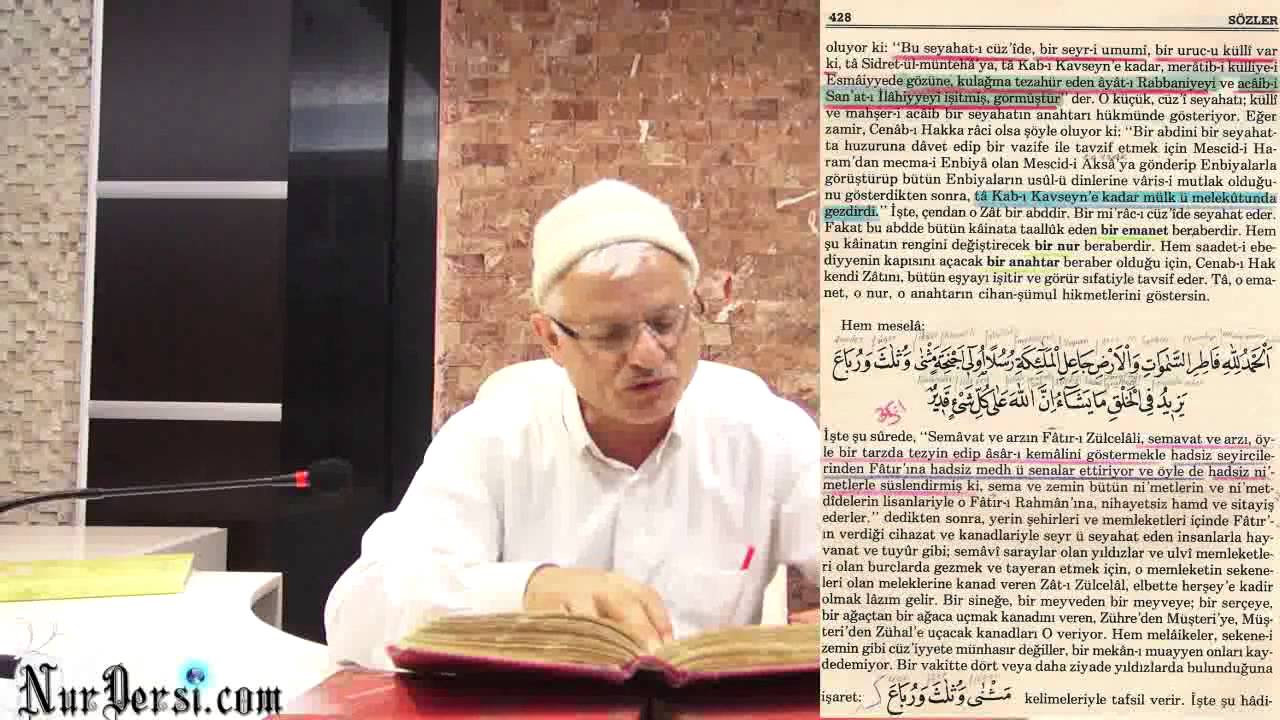 428
SÖZLER
oluyor ki: "Bu seyahat-ı cüz'îde, bir seyr-i umumî, bir uruc-u küllî var
ki, tâ Sidret-ül-müntehâ'ya, tâ Kab-ı Kavseyn'e kadar, merâtib-i külliye-i
Esmâiyyede gözüne, kulağına tezahür eden âyât-ı Rabbaniyeyi ve acâib-i
San'at-ı İlâhiyyeyi işitmiş, görmüştür" der. O küçük, cüz'î seyahatı; küllî
ve mahşer-i acâib bir seyahatın anahtarı hükmünde gösteriyor. Eğer
zamir, Cenâb-ı Hakka râci olsa şöyle oluyor ki: "Bir abdini bir seyahat-
ta huzuruna dâvet edip bir vazife ile tavzif etmek için Mescid-i Ha-
ram'dan mecma-i Enbiyâ olan Mescid-i Aksâ'ya gönderip Enbiyalarla
görüştürüp bütün Enbiyaların usûl-ü dinlerine vâris-i mutlak olduğu-
nu gösterdikten sonra, tâ Kab-ı Kavseyn'e kadar mülk ü melekûtunda
gezdirdi." İşte, çendan o Zât bir abddir. Bir mi'râc-ı cüz'îde seyahat eder.
Fakat bu abdde bütün kâinata taallûk eden bir emanet beraberdir. Hem
şu kâinatın rengini değiştirecek bir nur beraberdir. Hem saadet-i ebe-
diyyenin kapısını açacak bir anahtar beraber olduğu için, Cenab-ı Hak
kendi Zâtını, bütün eşyayı işitir ve görür sıfatiyle tavsif eder. Tâ, o ema-
net, o nur, o anahtarın cihan-şümul hikmetlerini göstersin.
Hem meselâ:
اَلْحَمْدُ لِلّٰهِ فَاطِرِ السَّمٰوَاتِ وَالْاَرْضِ جَاعِلِ الْمَلٰٓئِكَةِ رُسُلًا اُولٖٓى اَجْنِحَةٍ مَثْنٰى وَثُلٰثَ وَرُبَاعَ
يَزٖيدُ فِى الْخَلْقِ مَا يَشَٓاءُ اِنَّ اللّٰهَ عَلٰى كُلِّ شَىْءٍ قَدٖيرٌ
İşte şu sûrede, "Semâvat ve arzın Fâtır-ı Zülcelâli, semavat ve arzı, öy-
le bir tarzda tezyin edip âsâr-ı kemâlini göstermekle hadsiz seyircile-
rinden Fâtır'ına hadsiz medh ü senalar ettiriyor ve öyle de hadsiz ni'-
metlerle süslendirmiş ki, sema ve zemin bütün ni'metlerin ve ni'met-
dîdelerin lisanlariyle o Fâtır-ı Rahmân'ına, nihayetsiz hamd ve sitayiş
ederler." dedikten sonra, yerin şehirleri ve memleketleri içinde Fâtır'-
ın verdiği cihazat ve kanadlariyle seyr ü seyahat eden insanlarla hay-
vanat ve tuyûr gibi; semâvî saraylar olan yıldızlar ve ulvî memleketle-
ri olan burclarda gezmek ve tayeran etmek için, o memleketin sekene-
leri olan meleklerine kanad veren Zât-ı Zülcelâl, elbette herşey'e kadir
olmak lâzım gelir. Bir sineğe, bir meyveden bir meyveye; bir serçeye,
bir ağaçtan bir ağaca uçmak kanadını veren, Zühre'den Müşteri'ye, Müş-
teri'den Zühal'e uçacak kanadları O veriyor. Hem melâikeler, sekene-i
zemin gibi cüz'iyyete münhasır değiller, bir mekân-ı muayyen onları kay-
dedemiyor. Bir vakitte dört veya daha ziyade yıldızlarda bulunduğuna
işaret: مَثْنٰى وَثُلٰثَ وَرُبَاعَ kelimeleriyle tafsil verir. İşte şu hâdi-
NurDersi.com